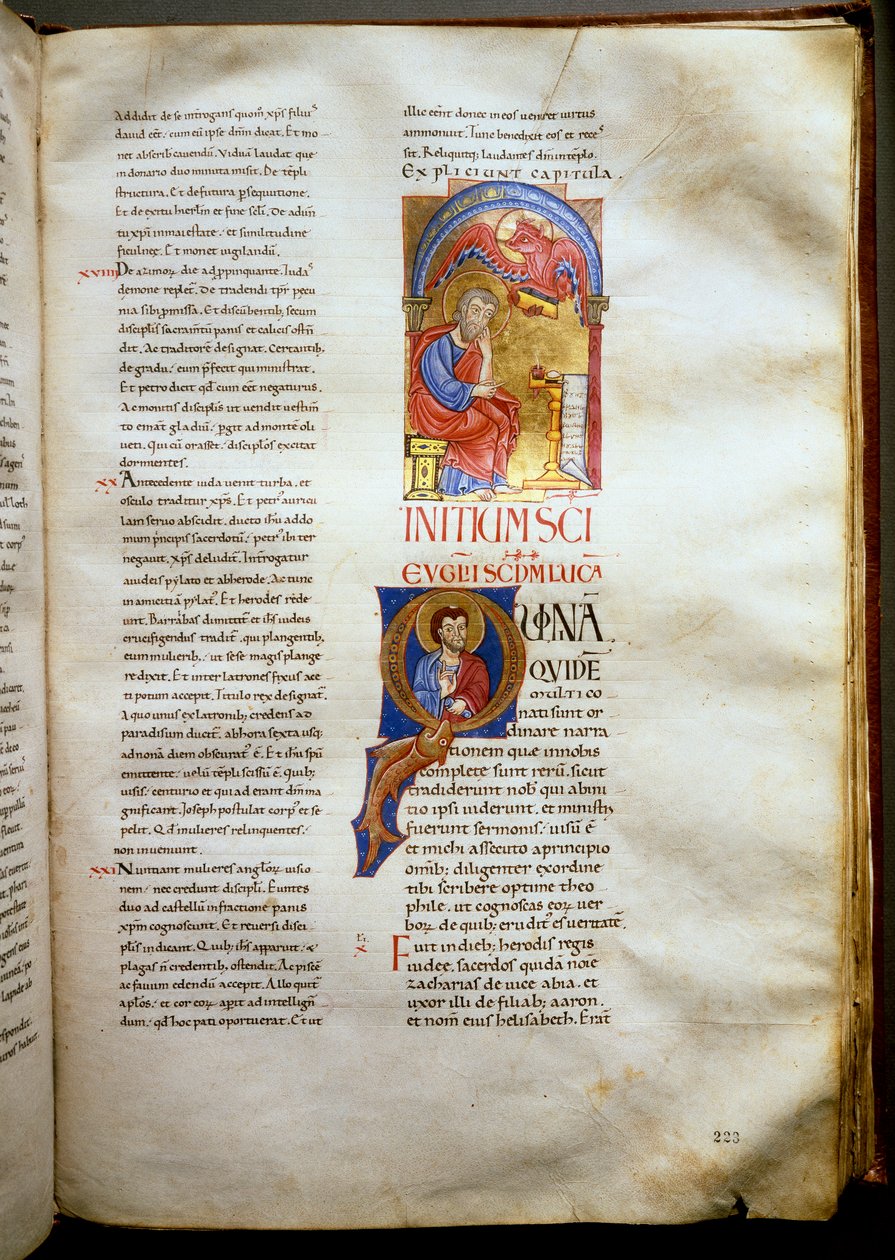 Addidit de se introgans quom̄ xp̄s filiuˢ
dauid eēt. cum eū ipse dnm̄ dicat. Et mo
net abscrib cauendū. Viduā laudat que
in donario duo minuta misit. De tēpli
structura. Et defutura p̄secutione.
Et de extu hierlm̄ et fine scl̄i. De adun̄
tu xp̄i inmaiestate. et similitudine
ficulnee. Et monet uigilandū.
XVIIII De azimoꝝ die adp̄pinquante. Iudaˢ
demone replet̄. De tradendi tp̄r pecu
nia sibi p̄missa. Et discūbentib; secum
disciplis sacramtū panis et calicis ostn̄
dit. Ac traditorē designat. Certantib;
de gradu. eum p̄fecit qui ministrat.
Et petro dicit qd̄ cum eēt negaturus.
Ac monitis disciplis ut vendit uestim̄
to emāt gladiū. pgit ad montē oli
ueti. Qui cū orasset. disciplos excitat
dormientes.
XX Antecedente iuda venit turba. et
osculo traditur xp̄s. Et petrˀ auricu
lam seruo abscidit. ducto ihū addo
mum p̄ncipis sacerdotū. petrˀ ibi ter
negauit. xp̄s deludit̄. Introgatur
aiudeis pylato et abherode. Ac tunc
in amicitiā pylatˀ. Et herodes rēde
unt. Barrabas dimittit̄ et ihs̄ iudeis
crucifigendus tradit̄. qui plangentib;
eum mulierib;. ut sese magis plange
re dixit. Et inter latrones fixus ace
ti potum accepit. Titulo rex designat̄.
A quo unus ex latronib; credens ad
paradisum ducit̄. abhora sexta usq;
ad nonā diem obscuratˀ ē. Et ihū spū
emittente. uelū tēpli scissū ē. quib;
uisis. centurio et qui ad erant dnm̄ ma
gnificant. Ioseph postulat corpˀ et se
pelit. Qd̄ mulieres relinquentes.
non inueniunt.
XXI Nuntiant mulieres angloꝝ uisio
nem. nec credunt discipli. Euntes
duo ad castellū infractione panis
xpm̄ cognoscunt. Et reuersi disci
plis indicant. Quib; ihs̄ apparuit. &
plagas n̄ credentib; ostendit. Ac piscē
ac fauum edendū accepit. Allo quit̄
aplos. et cor eoꝝ apit ad intellign̄
dum. qd̄ hoc pati oportuerat. Et ut
illic eēnt donec in eos veniret uirtus
ammonuit. Tunc benedixit eos et receˢ
sit. Reliquitq; laudantes dnm̄ intēplo.
EXPLICIUNT CAPITULA.
INITIUM SC̄I
EVGLII SCDM LUCĀ
QUONIĀ
QVIDĒ
multi co
nati sunt or
dinare narra
tionem quæ innobis
complete sunt rerū. sicut
tradiderunt nobˀ qui abini
tio ipsi uiderunt. et ministri
fuerunt sermonis. uisū ē
et michi assecuto aprincipio
omib; diligenter exordine
tibi scribere optime theo
phile. ut cognoscas eoꝝ uer
boꝝ de quib; eruditˀ es ueritatē.
Fuit indieb; herodis regis
iudee. sacerdos quidā noīe
zacharias de uice abia. et
uxor illi de filiab; aaron.
et nom̄ eius helisabeth. Erāt
223